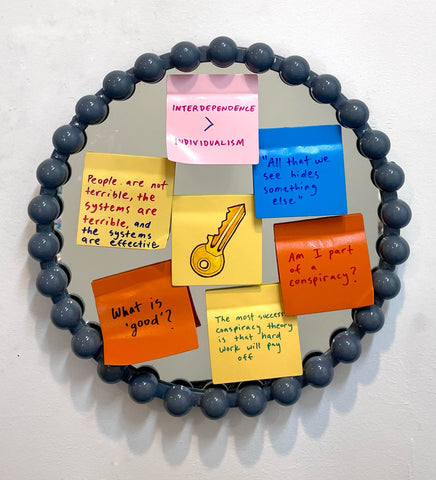 INTERDEPENDENCE
>
INDIVIDUALISM
"All that we
see hides
something
else"
People are not
terrible, the
systems are
terrible, and
the systems
are effective
Am I part
of a
conspiracy?
What is
'good'?
The most
conspiracy theory
is that hard
work will pay
off